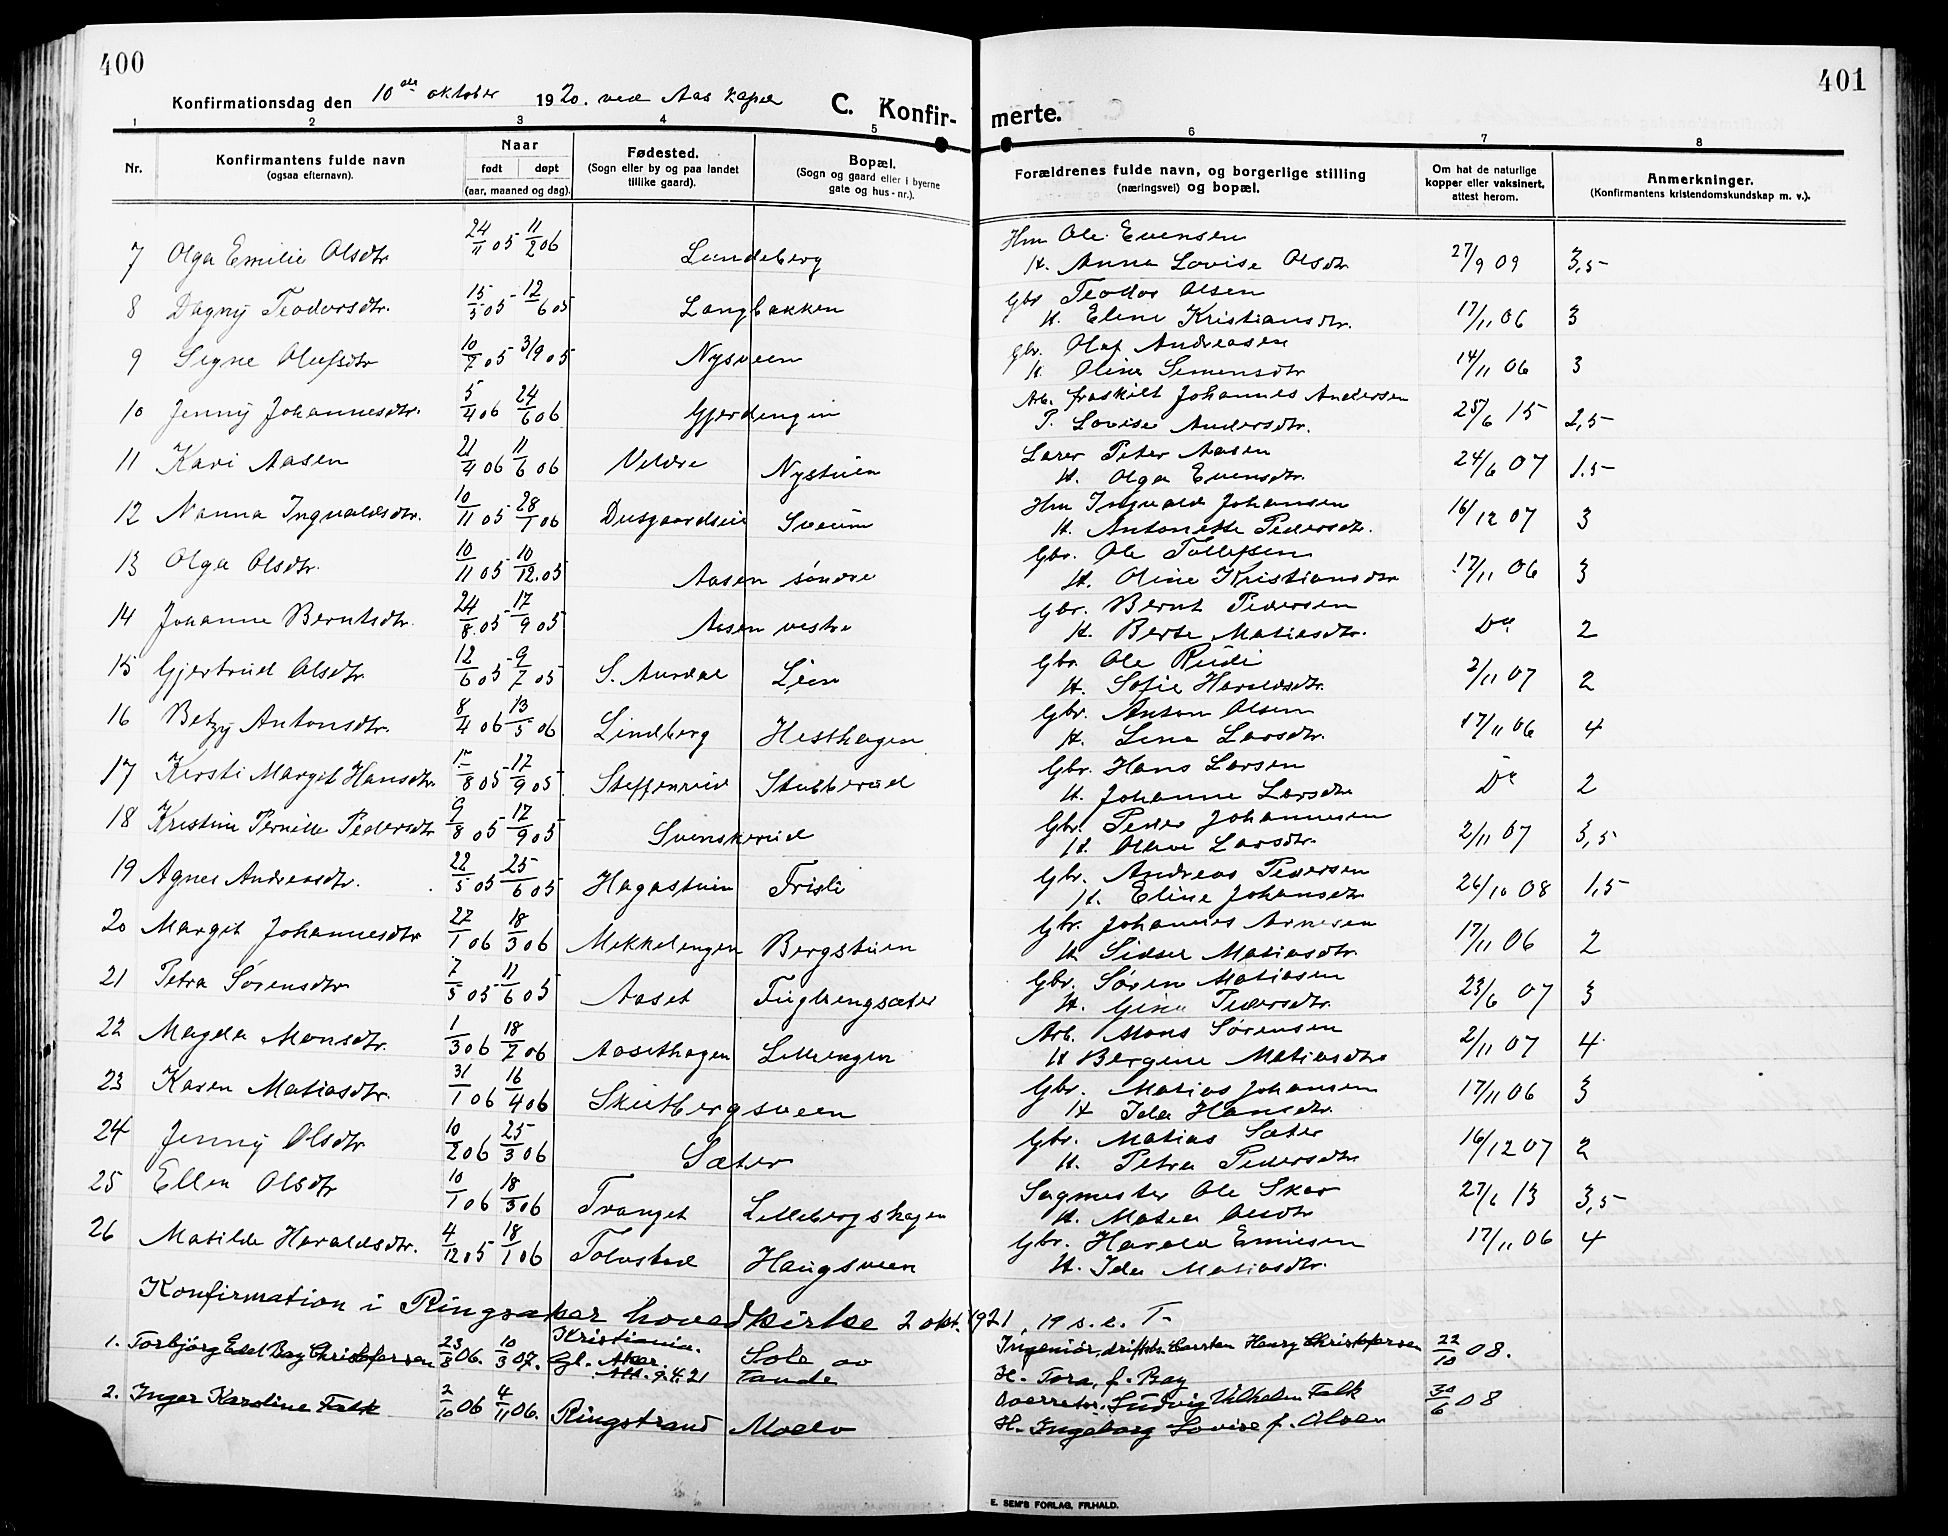 400
401
Konfirmationsdag den 10de oktober 1920. ved Aas kapel
C. Konfirmerte.
1 2 3 4 5 6 7 8
Nr. Konfirmantens fulde navn (ogsaa efternavn). Naar født døpt (aar, maaned og dag). Fødested. (Sogn eller by og paa landet tillike gaard). Bopæl. (Sogn og gaard eller i byerne gate og hus-nr.). Forældrenes fulde navn, og borgerlige stilling (næringsvei) og bopæl. Om hat de naturlige kopper eller vaksinert, attest herom. Anmerkninger. (Konfirmantens kristendomskundskap m. v.).
7 Olga Emilie Olsdtr 24/11 05 - 11/2 06 Lundeberg Hm Ole Evensen 27/9 09 3,5
H. Anna Lovise Olsdtr
8 Dagny Teodorsdtr. 15/5 05 - 12/6 05 Langbakken Gbr Teodor Olsen 17/11 06 3
H. Eline Kristiansdtr.
9 Signe Olufsdtr 10/7 05 3/9 05 Nysveen Gbr. Olaf Andreasen 14/11 06 3
H. Oline Simensdtr
10 Jenny Johannesdtr. 5/4 06 24/6 06 Gjerdengin Arb. fraskilt Johannes Andersen 25/6 15 2,5
P. Lovise Andersdtr.
11 Kari Aasen 21/4 06 11/6 06 Veldre Nystuen Lærer Peter Aasen 24/6 07 1.5
H. Olga Evensdtr.
12 Nanna Ingvaldsdtr. 10/11 05 - 28/1 06 Dusgaardseie Sveum Hm Ingvald Johansen 16/12 07 3
H. Antonette Pedersdtr.
13 Olga Olsdtr. 10/11 05 - 10/12.05 Aasen søndre Gbr. Ole Tollefsen 17/11 06 3
H. Oline Kristiansdtr
14 Johanne Berntsdtr. 24/8.05 - 17/9 05 Aasen vestre Gbr. Bernt Pedersen Do 2
H. Berte Matiasdtr.
15 Gjertrud Olsdtr. 12/6 05 - 9/7 05 S. Aurdal Lien Gbr. Ole Rudi 2/11 07 2
H. Sofie Haraldsdtr.
16 Betzy Antonsdtr. 8/4 06 13/5 06 Lindberg Hesthagen Gbr. Anton Olsen 17/11 06 4
H. Lina Larsdtr.
17 Kersti Margit Hansdtr. /8 05 - 17/9 05 Steffenrud Stubberud Gbr. Hans Larsen Do 2
H. Johanne Larsdtr
18 Kristine Pernille Pedersdtr 9/8 05 - 17/9 05 Svenskerud Gbr. Peder Johannesen 2/11 07 3,5
H. Olave Larsdtr.
19 Agnes Andreasdtr. 22/5 05 25/6 05 Hagastuen Frisli Gbr. Andreas Pedersen 26/10 08 1,5
H. Eline Johansdtr
20 Margit Johannesdtr 27/1 06 18/3 06 Mekkelengen Bergstuen Gbr. Johannes Arnesen 17/11 06 2
H. Sidsel Matiasdtr.
21 Petra Sørensdtr 7/5 05 - 11/6 05 Aaset Fuglsengsæter Gbr. Søren Matiasen 23/6 07 3
H. Gina Pedersdtr.
22 Magda Monsdtr. 1/3 06 18/7 06 Aasethagen Lilleengen Arb. Mons Sørensen 2/11 07 4
H Bergine Matiasdtr
23 Karen Matiasdtr. 31/1 06 16/4 06 Skutbergsveen Gbr. Matias Johansen 17/11 06 3
H Ida Hansdtr.
24 Jenny Olsdtr 10/2 06 25/3 06 Sæter Gbr. Matias Sæter 16/12 07 2
H. Petra Pedersdtr
25 Ellen Olsdtr 10/1 06 18/3 06 Tranget Lillebergshagen Sagmester Ole Skar 27/6 13 3,5
H. Matea Olsdtr
26 Matilde Haraldsdtr. 4/12 05 - 18/1 06 Tolvstad Haugsveen Gbr. Harald Emilsen 17/11 06 4
H. Ida Matiasdtr.
Konfirmation i Ringsaker hovedkirke 2 okt. 1921, 19 s. e. T-
1. Torbjørg Edel Bay Christophersen 23/8 06. 10/3 07. Kristiania. Sole av Ingeniør, driftsb. Carsten Henry Christophersen 22/10 08.
Gl. Aker. Att. 9.4.21 Tande H. Tora, f. Bay
2. Inger Karoline Falk 2/10 06 4/11 06. Ringstrand Moelv Overretss. Ludvig Vilhelm Falk 30/6 08
H. Ingeborg Lovise f. Olsen
E. SEM'S FORLAG, FR.HALD.